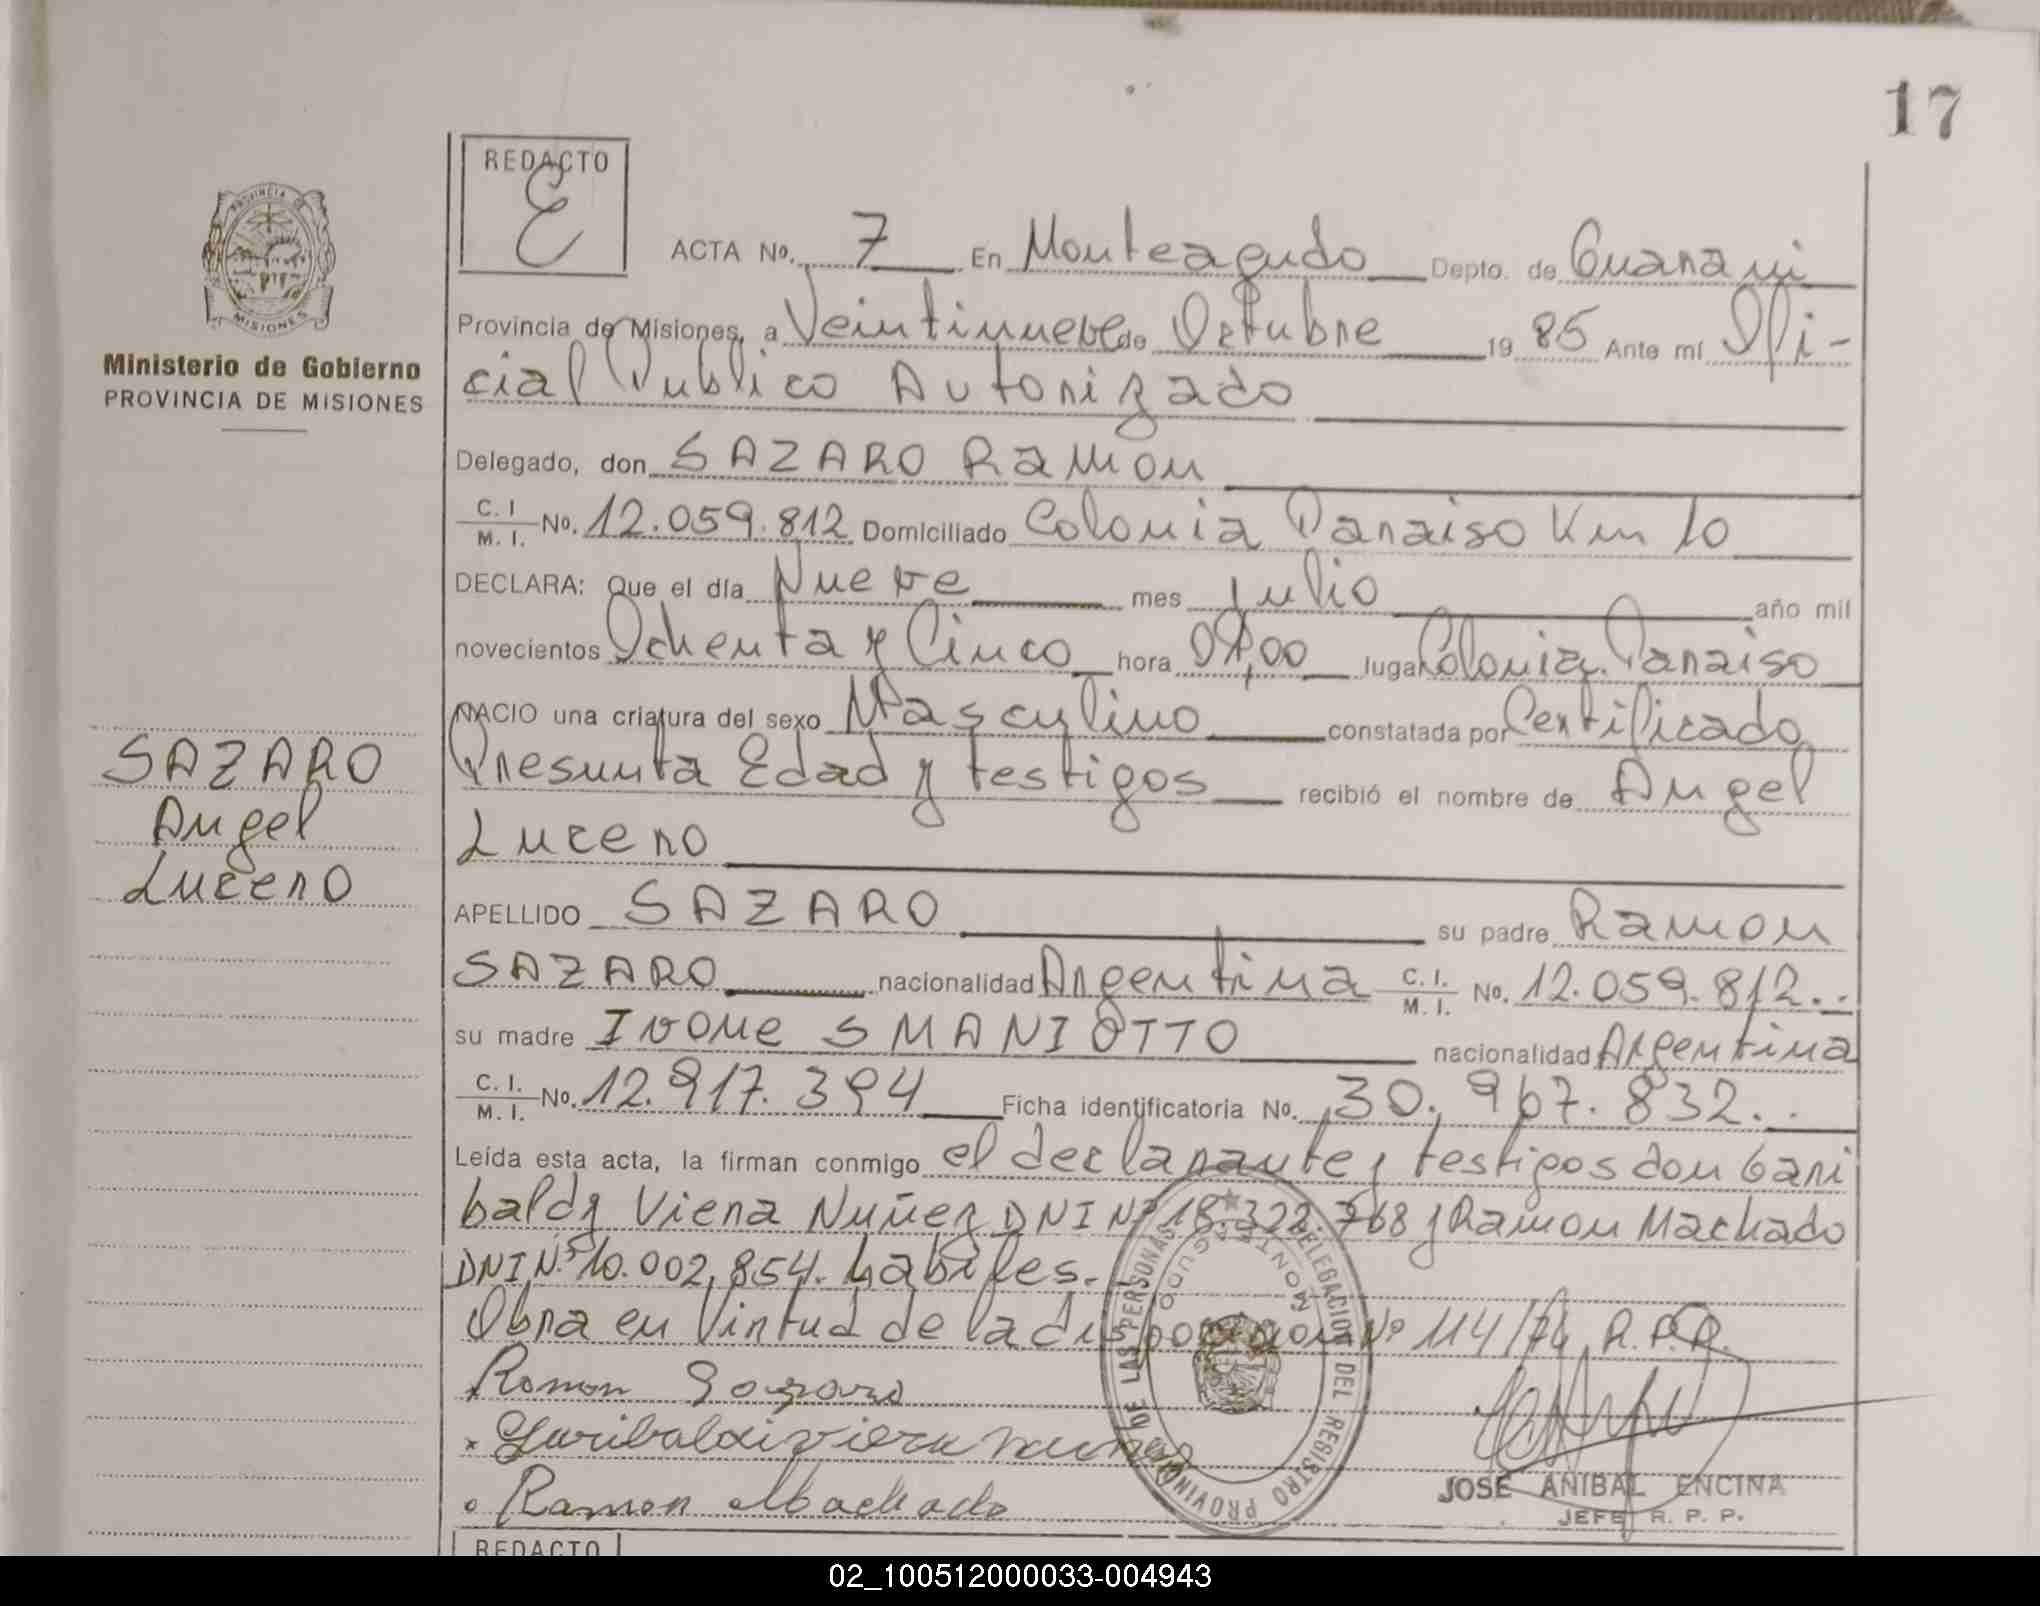 17
REDACTO
E
PROVINCIA DE
MISIONES
Ministerio de Gobierno
PROVINCIA DE MISIONES
SAZARO
Angel
Lucero
ACTA No. 7 En Monteagudo Depto. de Guarani
Provincia de Misiones, a Veintinueve de Octubre 1985 Ante mí Ofi-
cial Publico Autorizado
Delegado, don SAZARO Ramon
C. I / M. I. No. 12.059.812 Domiciliado Colonia Paraiso Km 10
DECLARA: Que el día Nueve mes Julio año mil
novecientos Ochenta y Cinco hora lugar Colonia Paraiso
NACIO una criatura del sexo Masculino constatada por Certificado
Presunta Edad y testigos recibió el nombre de Angel
Lucero
APELLIDO SAZARO su padre Ramon
SAZARO nacionalidad Argentina C. I. / M. I. No. 12.059.812..
su madre Ivone SMANIOTTO nacionalidad Argentina
C. I. / M. I. No. 12.917.394 Ficha identificatoria No. 30.967.832..
Leída esta acta, la firman conmigo el declarante y testigos don Gari
baldy Viera Nuñez DNI Nº 18.322.768 y Ramon Machado
DNI Nº 10.002.854. habiles.
Obra en Virtud de la disposicion Nº 114/74 R.P.P.
Ramon Sazaro
x Garibaldi viera nuñez
o Ramon Machado
DELEGACION DEL REGISTRO PROVINCIAL DE LAS PERSONAS
MONTEAGUDO
JOSE ANIBAL ENCINA
JEFE R. P. P.
REDACTO
02_100512000033-004943